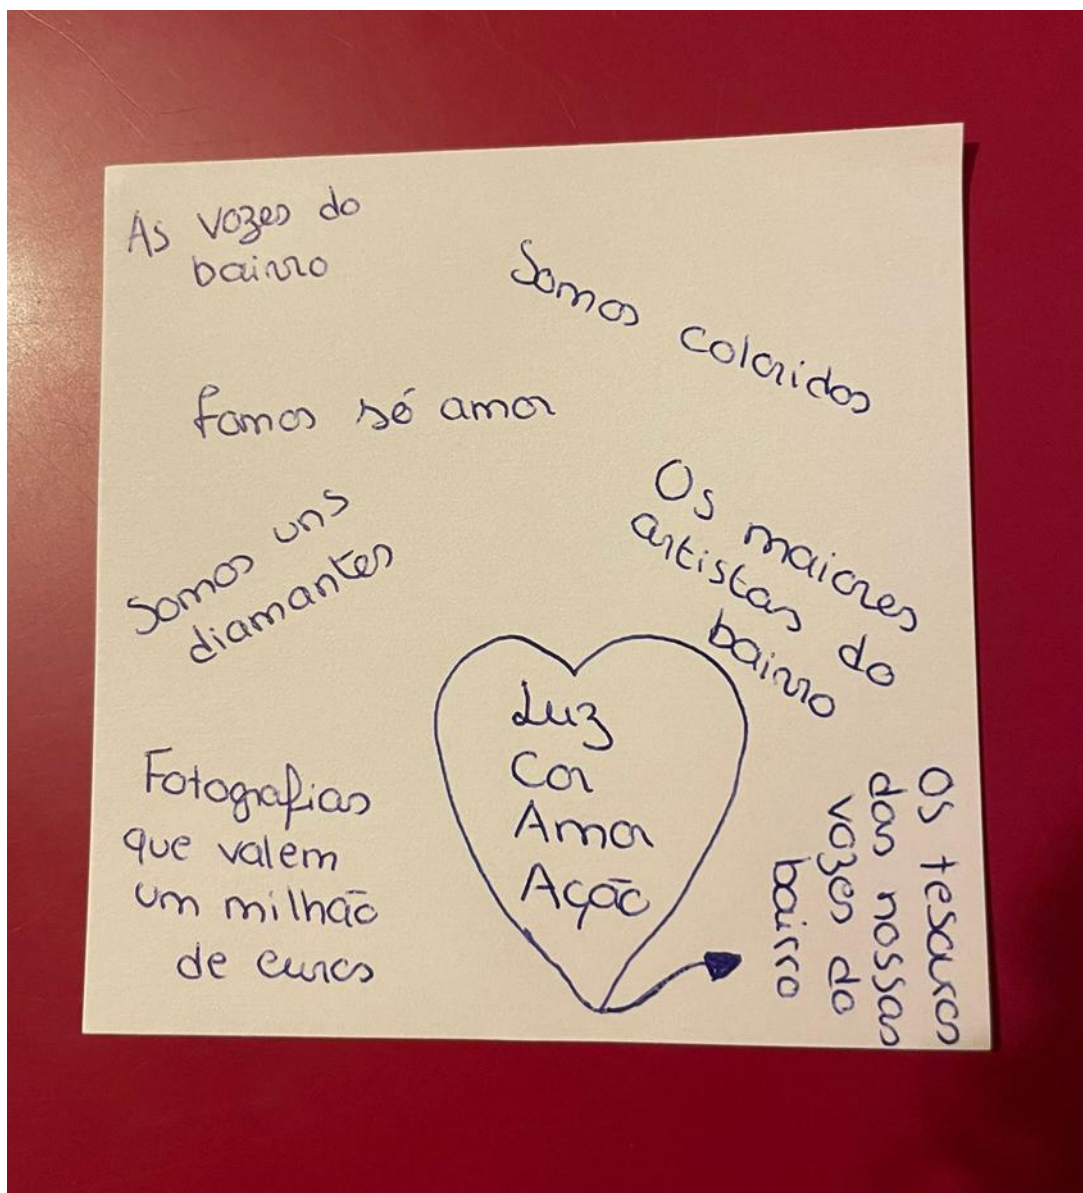 As vozes do
bairro
Somos coloridos
fomos só amor
Somos uns
diamantes
Os maiores
artistas do
bairro
Luz
Cor
Amor
Ação
Fotografias
que valem
um milhão
de euros
Os tesouros
das nossas
vozes do
bairro